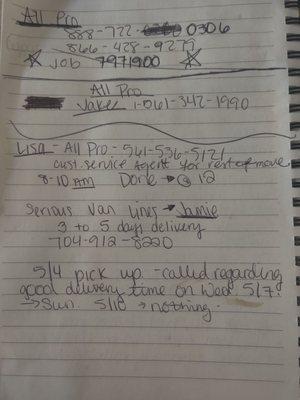 All Pro
888-722-0306
866-428-9277
☆ Job 7971900 ☆
All Pro
Jake 1-061-342-1990
Lisa - All Pro - 561-536-5121
cust. service Agent for rest of move
8-10 AM Done → @ 12
Serious Van Lines → Jamie
3 to 5 days delivery
704-912-8220
5/4 pick up - called regarding
good delivery time on Wed. 5/7.
→ Sun. 5/10 → nothing.